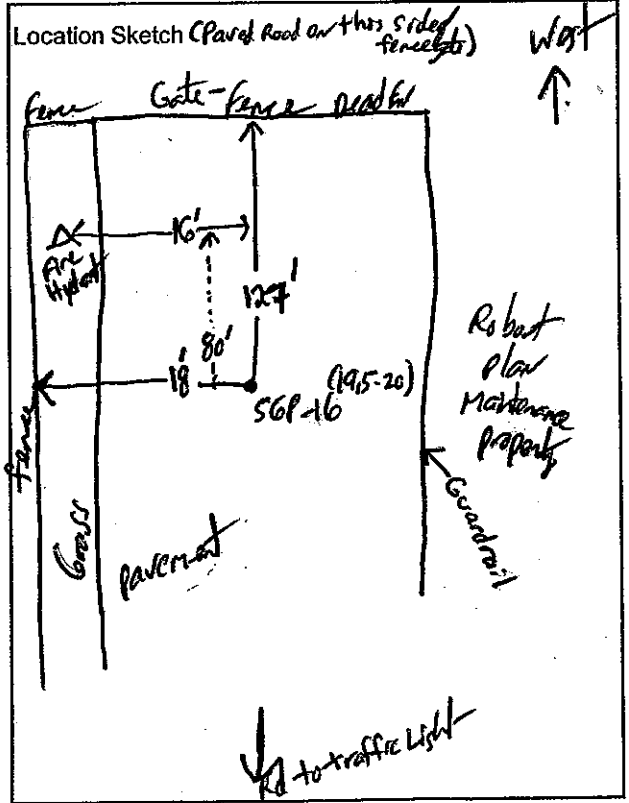 Location Sketch (Paved Road on this side of
fence/gate)
West
Fence
Gate-Fence Dead End
16'
Fire
Hydrant
127'
80'
18'
(19.5-20)
SGP-16
Robust
Plan
Maintenance
Property
fence
Grass
Guardrail
pavement
Rd to traffic Light